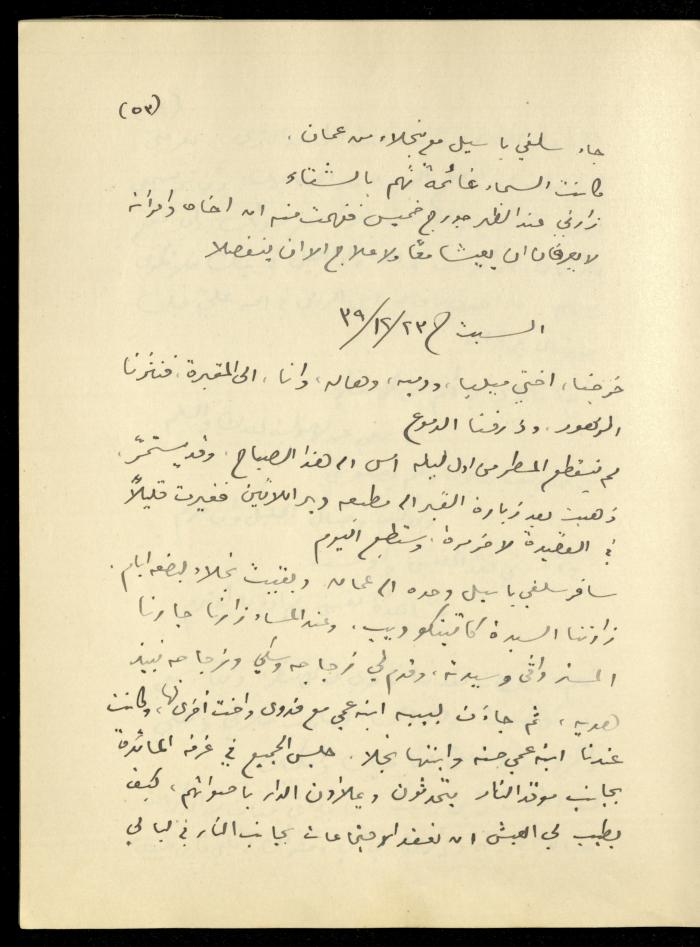 (٥٣)
جاء سلفي باسيل مع نجلاء من عمان.
كانت السماء غائمة تهم بالشتاء
زارني عند الظهر جورج خميس ففهمت منه ان اخاه وامرأته
لا يعرفان ان يعيشا معًا ولا علاج الا ان ينفصلا
السبت ٢٣/١٢/٣٩
خرجنا، اختي ميليا، ودميه، وهاله، وانا، الى المقبرة، فنثرنا
الزهور، وذرفنا الدموع
لم ينقطع المطر من اول ليله امس الى هذا الصباح. وقد يستمرّ.
ذهبت بعد زيارة القبر الى مطبعه دير اللاتين فغيرت قليلًا
في القصيدة لاخر مرة، وستطبع اليوم
سافر سلفي باسيل وحده الى عمان وبقيت نجلاء بضعه ايام.
زارتنا السيدة كاتينكو ديب، وعند المساء زارنا جارنا
المستر واقي وسيدته، وقدم لي زجاجه وسكي وزجاجه نبيذ
هديه، ثم جاءت لبيبه ابنة عمي مع فدوى واخت أخرى لها، وكانت
عندنا ابنة عمي حنه وابنتها نجلا. جلس الجميع في غرفه المائدة
بجانب موقد النار يتحدثون ويملاؤون الدار باصواتهم، كيف
يطيب لي العيش ان نعقد الاجتماعات بجانب النار في ليالي